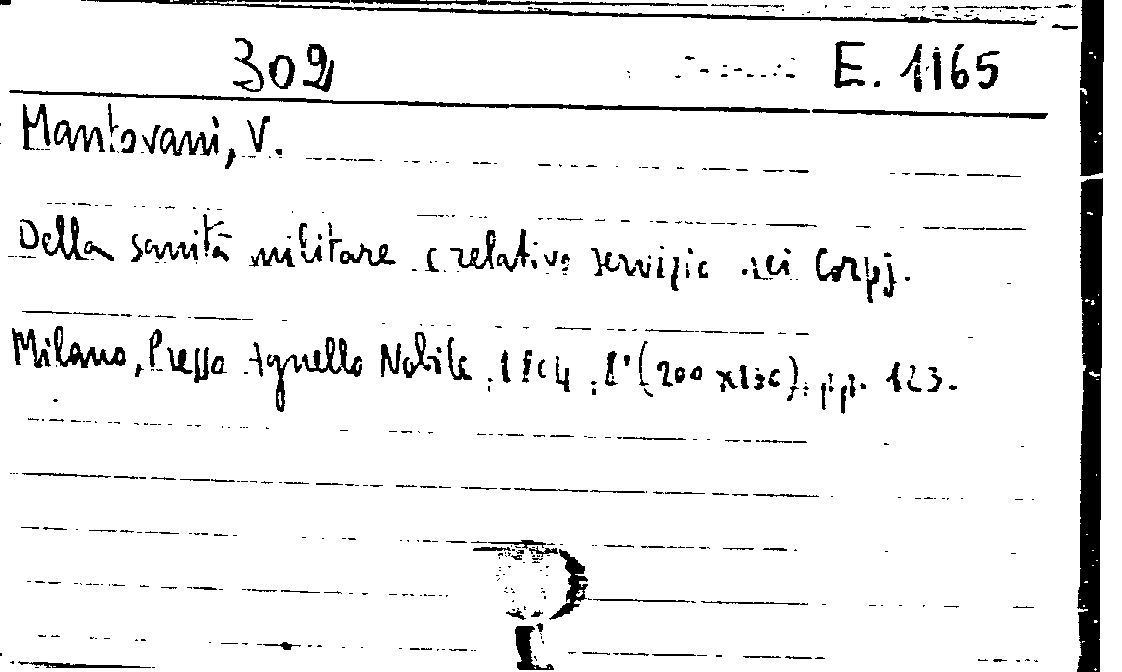 302 E. 1165
Mantovani, V.
Della sanità militare e relativo servizio nei Corpj.
Milano, Presso Agnello Nobile, 1804, 8° (200 x 136), pp. 123.